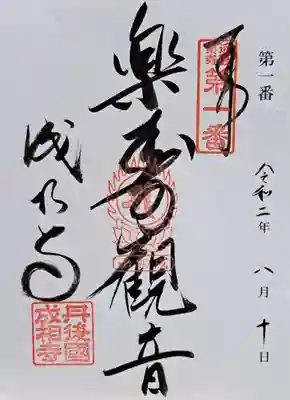 第一番
令和二年 八月 十日
第一番
楽寿觀音
成相寺
丹後國
成相寺